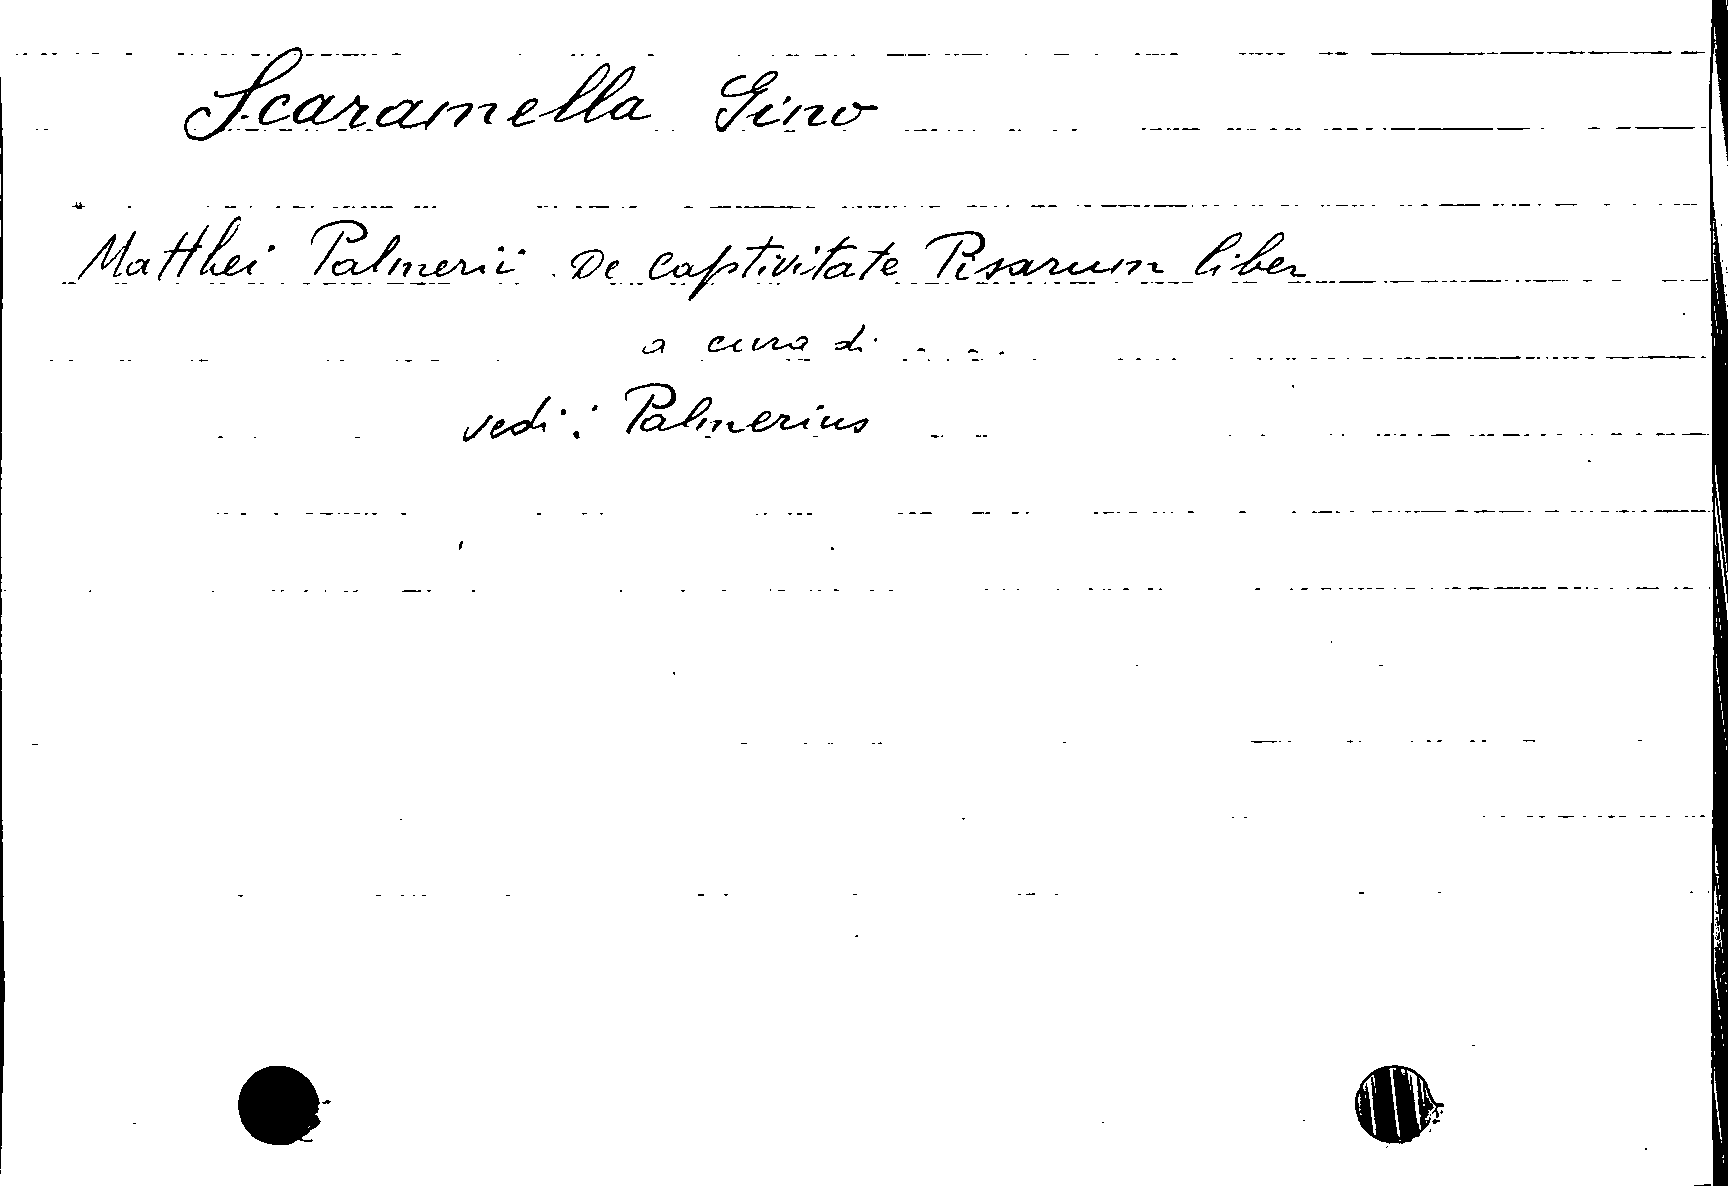 Scaramella Gino
Matthei Palmerii De captivitate Pisarum liber
a cura di ....
vedi: Palmerius